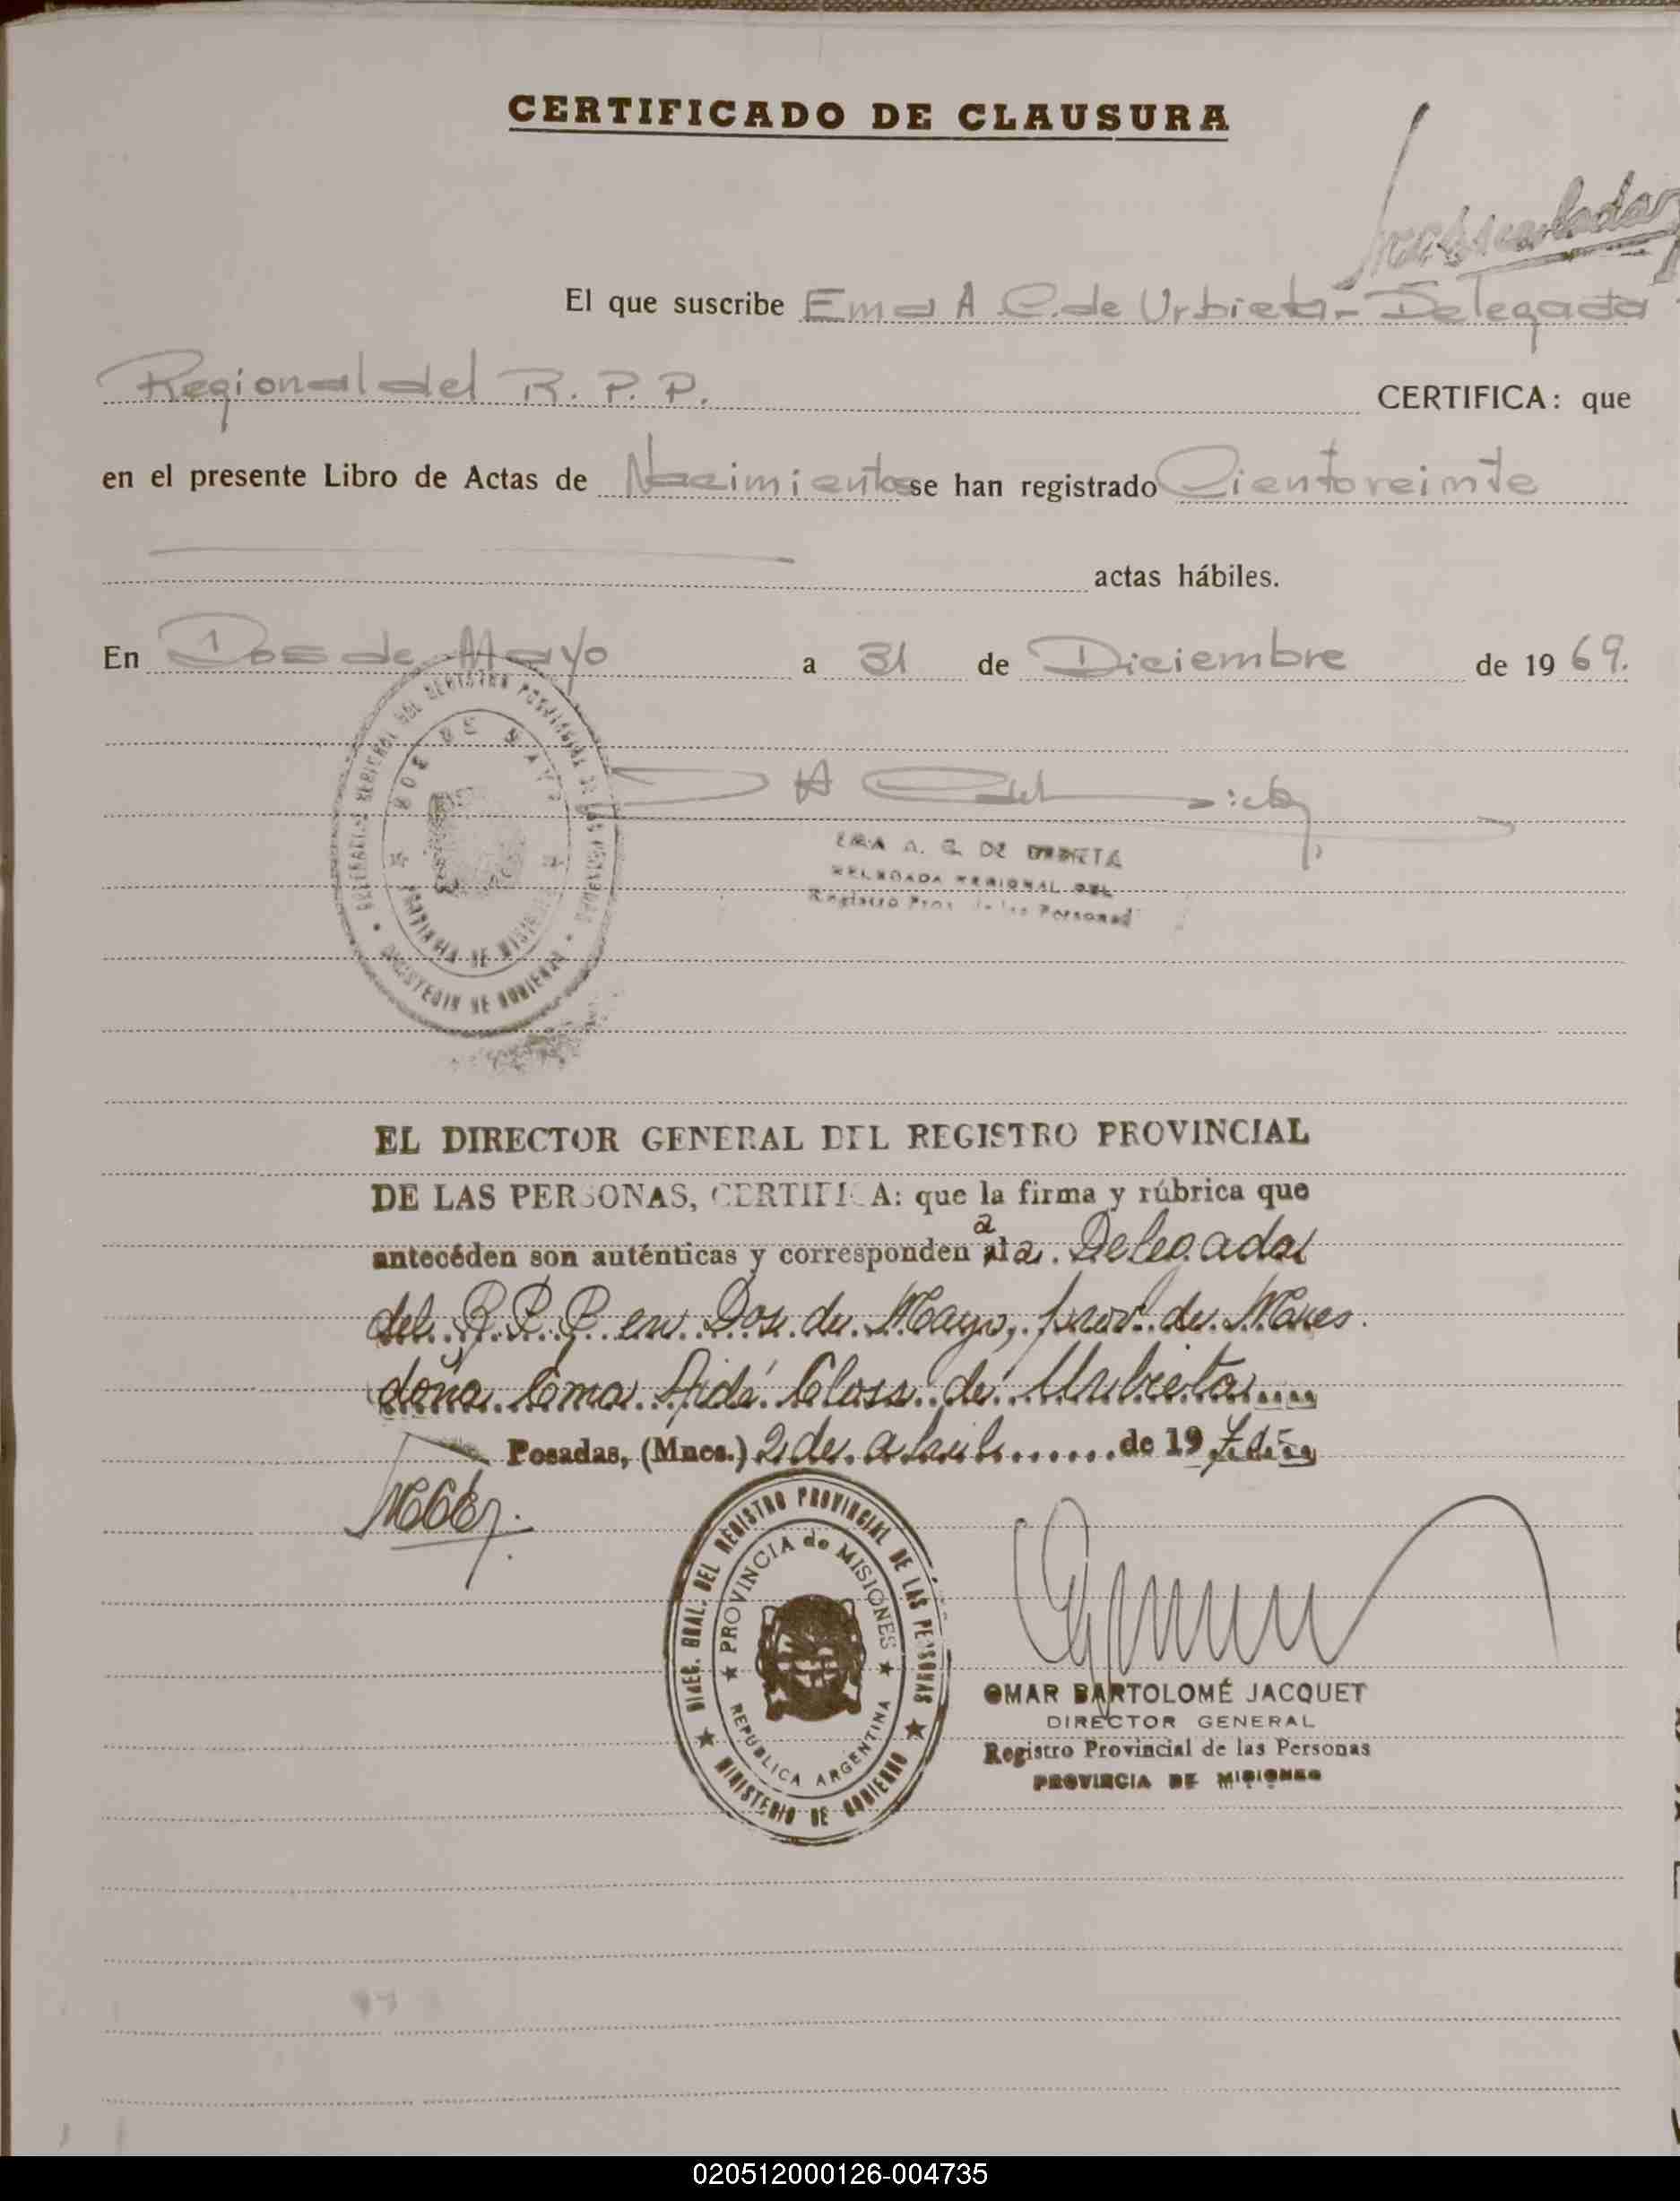 CERTIFICADO DE CLAUSURA
El que suscribe Ema A C. de Urbieta - Delegada
Regional del R. P. P. CERTIFICA: que
en el presente Libro de Actas de Nacimientos se han registrado Cientoveinte
actas hábiles.
En Dos de Mayo a 31 de Diciembre de 1969.
DOS DE MAYO
PROVINCIA DE MISIONES
MINISTERIO DE GOBIERNO
EMA A. C. DE URBIETA
DELEGADA REGIONAL DEL
Registro Prov. de las Personas
EL DIRECTOR GENERAL DEL REGISTRO PROVINCIAL
DE LAS PERSONAS, CERTIFICA: que la firma y rúbrica que
antecéden son auténticas y corresponden a la Delegada
del R. P. P. en Dos de Mayo, prov. de Mnes.
doña Ema Aidé Closs de Urbieta
Posadas, (Mnes.) 2 de abril de 19
DIREC. GRAL. DEL REGISTRO PROVINCIAL DE LAS PERSONAS
PROVINCIA de MISIONES
REPUBLICA ARGENTINA
MINISTERIO DE GOBIERNO
OMAR BARTOLOMÉ JACQUET
DIRECTOR GENERAL
Registro Provincial de las Personas
PROVINCIA DE MISIONES
020512000126-004735